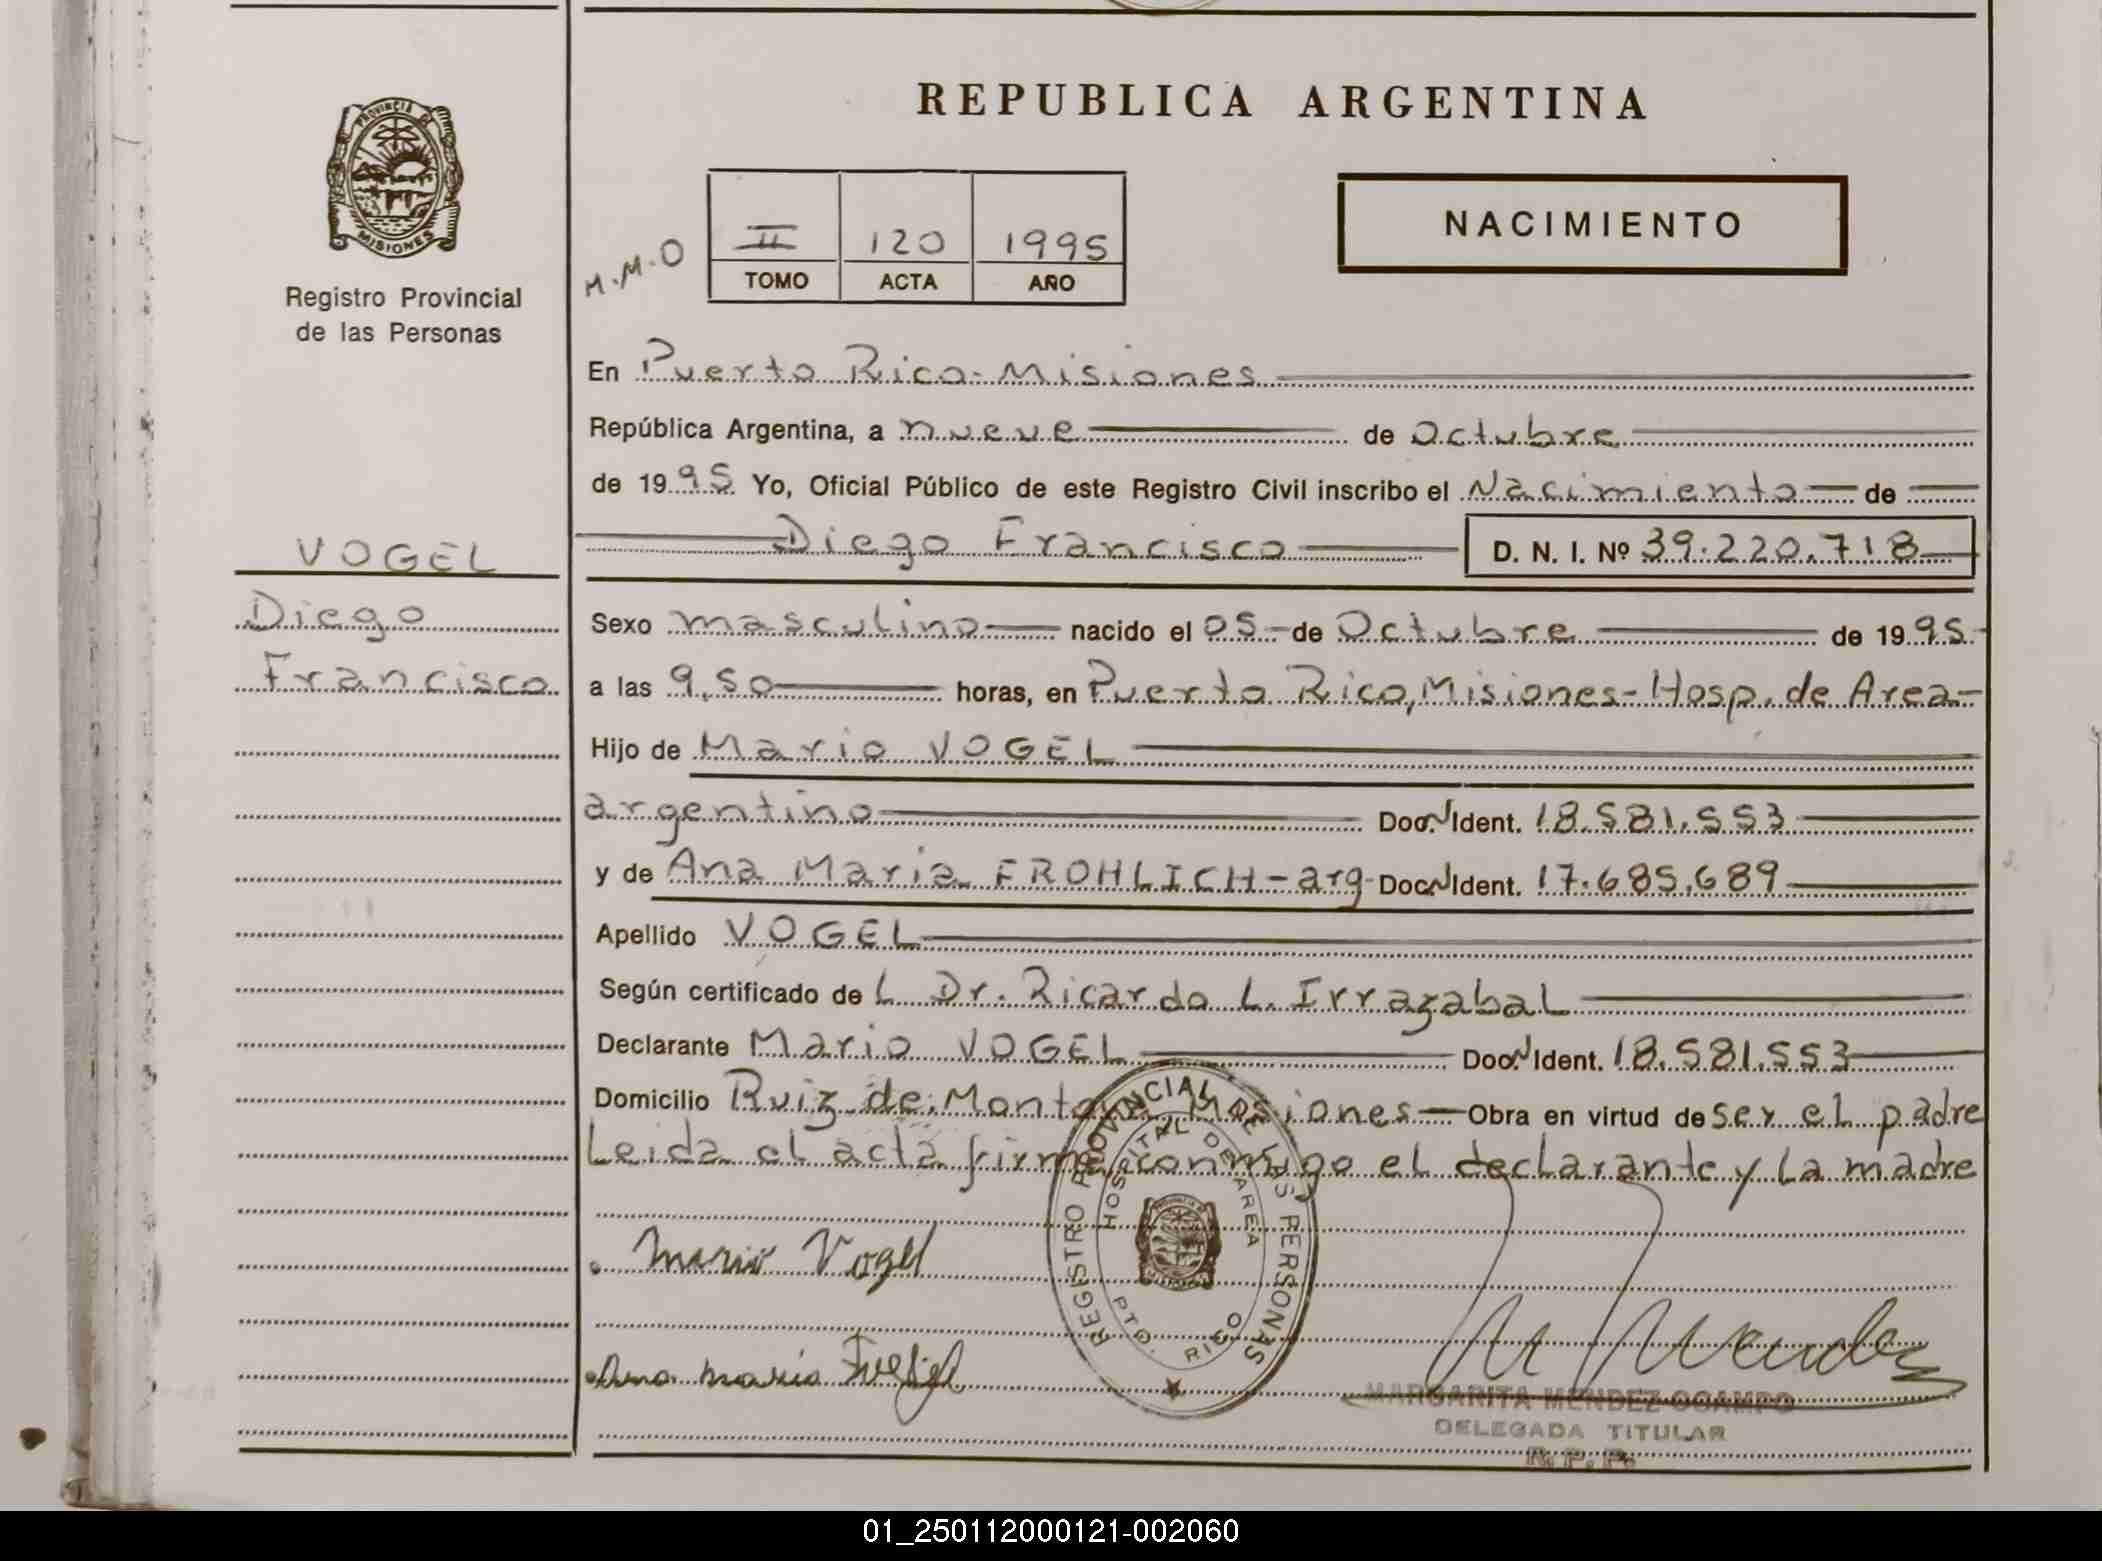 REPUBLICA ARGENTINA
PROVINCIA DE MISIONES
Registro Provincial
de las Personas
M.M.O
II 120 1995
TOMO ACTA AÑO
NACIMIENTO
En Puerto Rico - Misiones
República Argentina, a nueve de Octubre
de 1995 Yo, Oficial Público de este Registro Civil inscribo el Nacimiento de
Diego Francisco D. N. I. Nº 39.220.718
VOGEL
Diego
Francisco
Sexo masculino nacido el 05 de Octubre de 1995
a las 9,50 horas, en Puerto Rico, Misiones - Hosp. de Area -
Hijo de Mario VOGEL
argentino Doc. Ident. 18.581.553
y de Ana Maria FROHLICH - arg - Doc. Ident. 17.685.689
Apellido VOGEL
Según certificado de L Dr. Ricardo L. Irrazabal
Declarante Mario VOGEL Doc. Ident. 18.581.553
Domicilio Ruiz de Montoya Misiones Obra en virtud de ser el padre
Leida el acta firma conmigo el declarante y la madre
Mario Vogel
Ana maria
REGISTRO PROVINCIAL DE LAS PERSONAS
HOSPITAL DE AREA
PTO. RICO
MARGARITA MENDEZ OCAMPO
DELEGADA TITULAR
R.P.P.
01_250112000121-002060